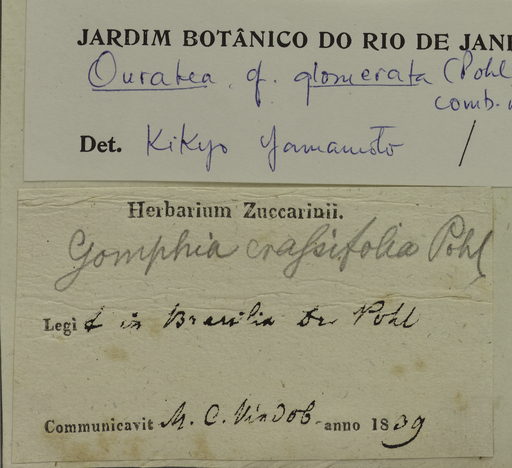 JARDIM BOTÂNICO DO RIO DE JANE
Ouratea cf. glomerata (Pohl
comb.
Det. Kikyo Yamamoto /
Herbarium Zuccarinii.
Gomphia crassifolia Pohl
Legit in Brasilia Dr. Pohl
Communicavit M. C. Vindob. anno 1839